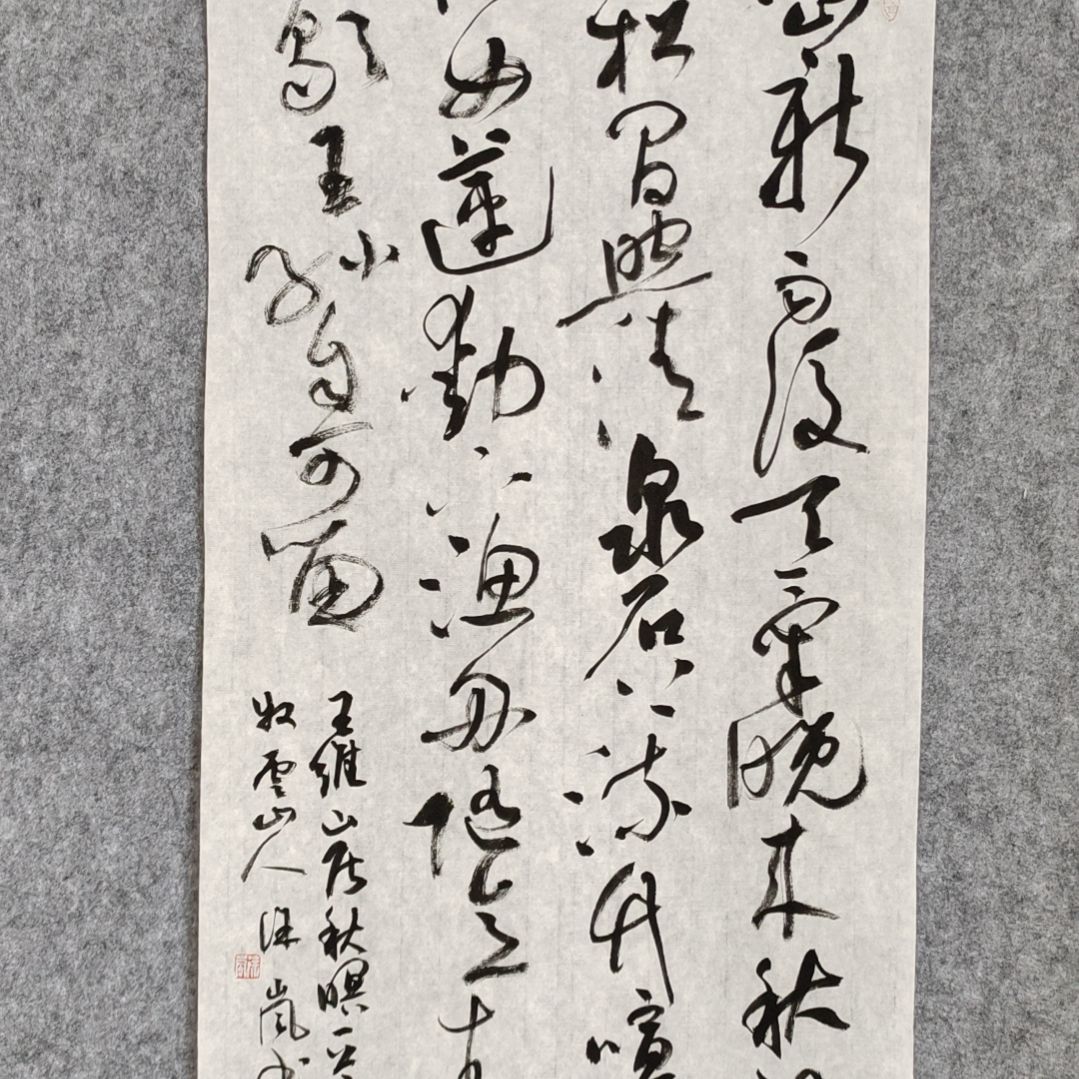 山新雨後天氣晚來秋
松間照清泉石上流竹喧
女蓮動下漁舟隨意春
歇王孫自可留
王維山居秋暝一首
牧雲山人嵐书